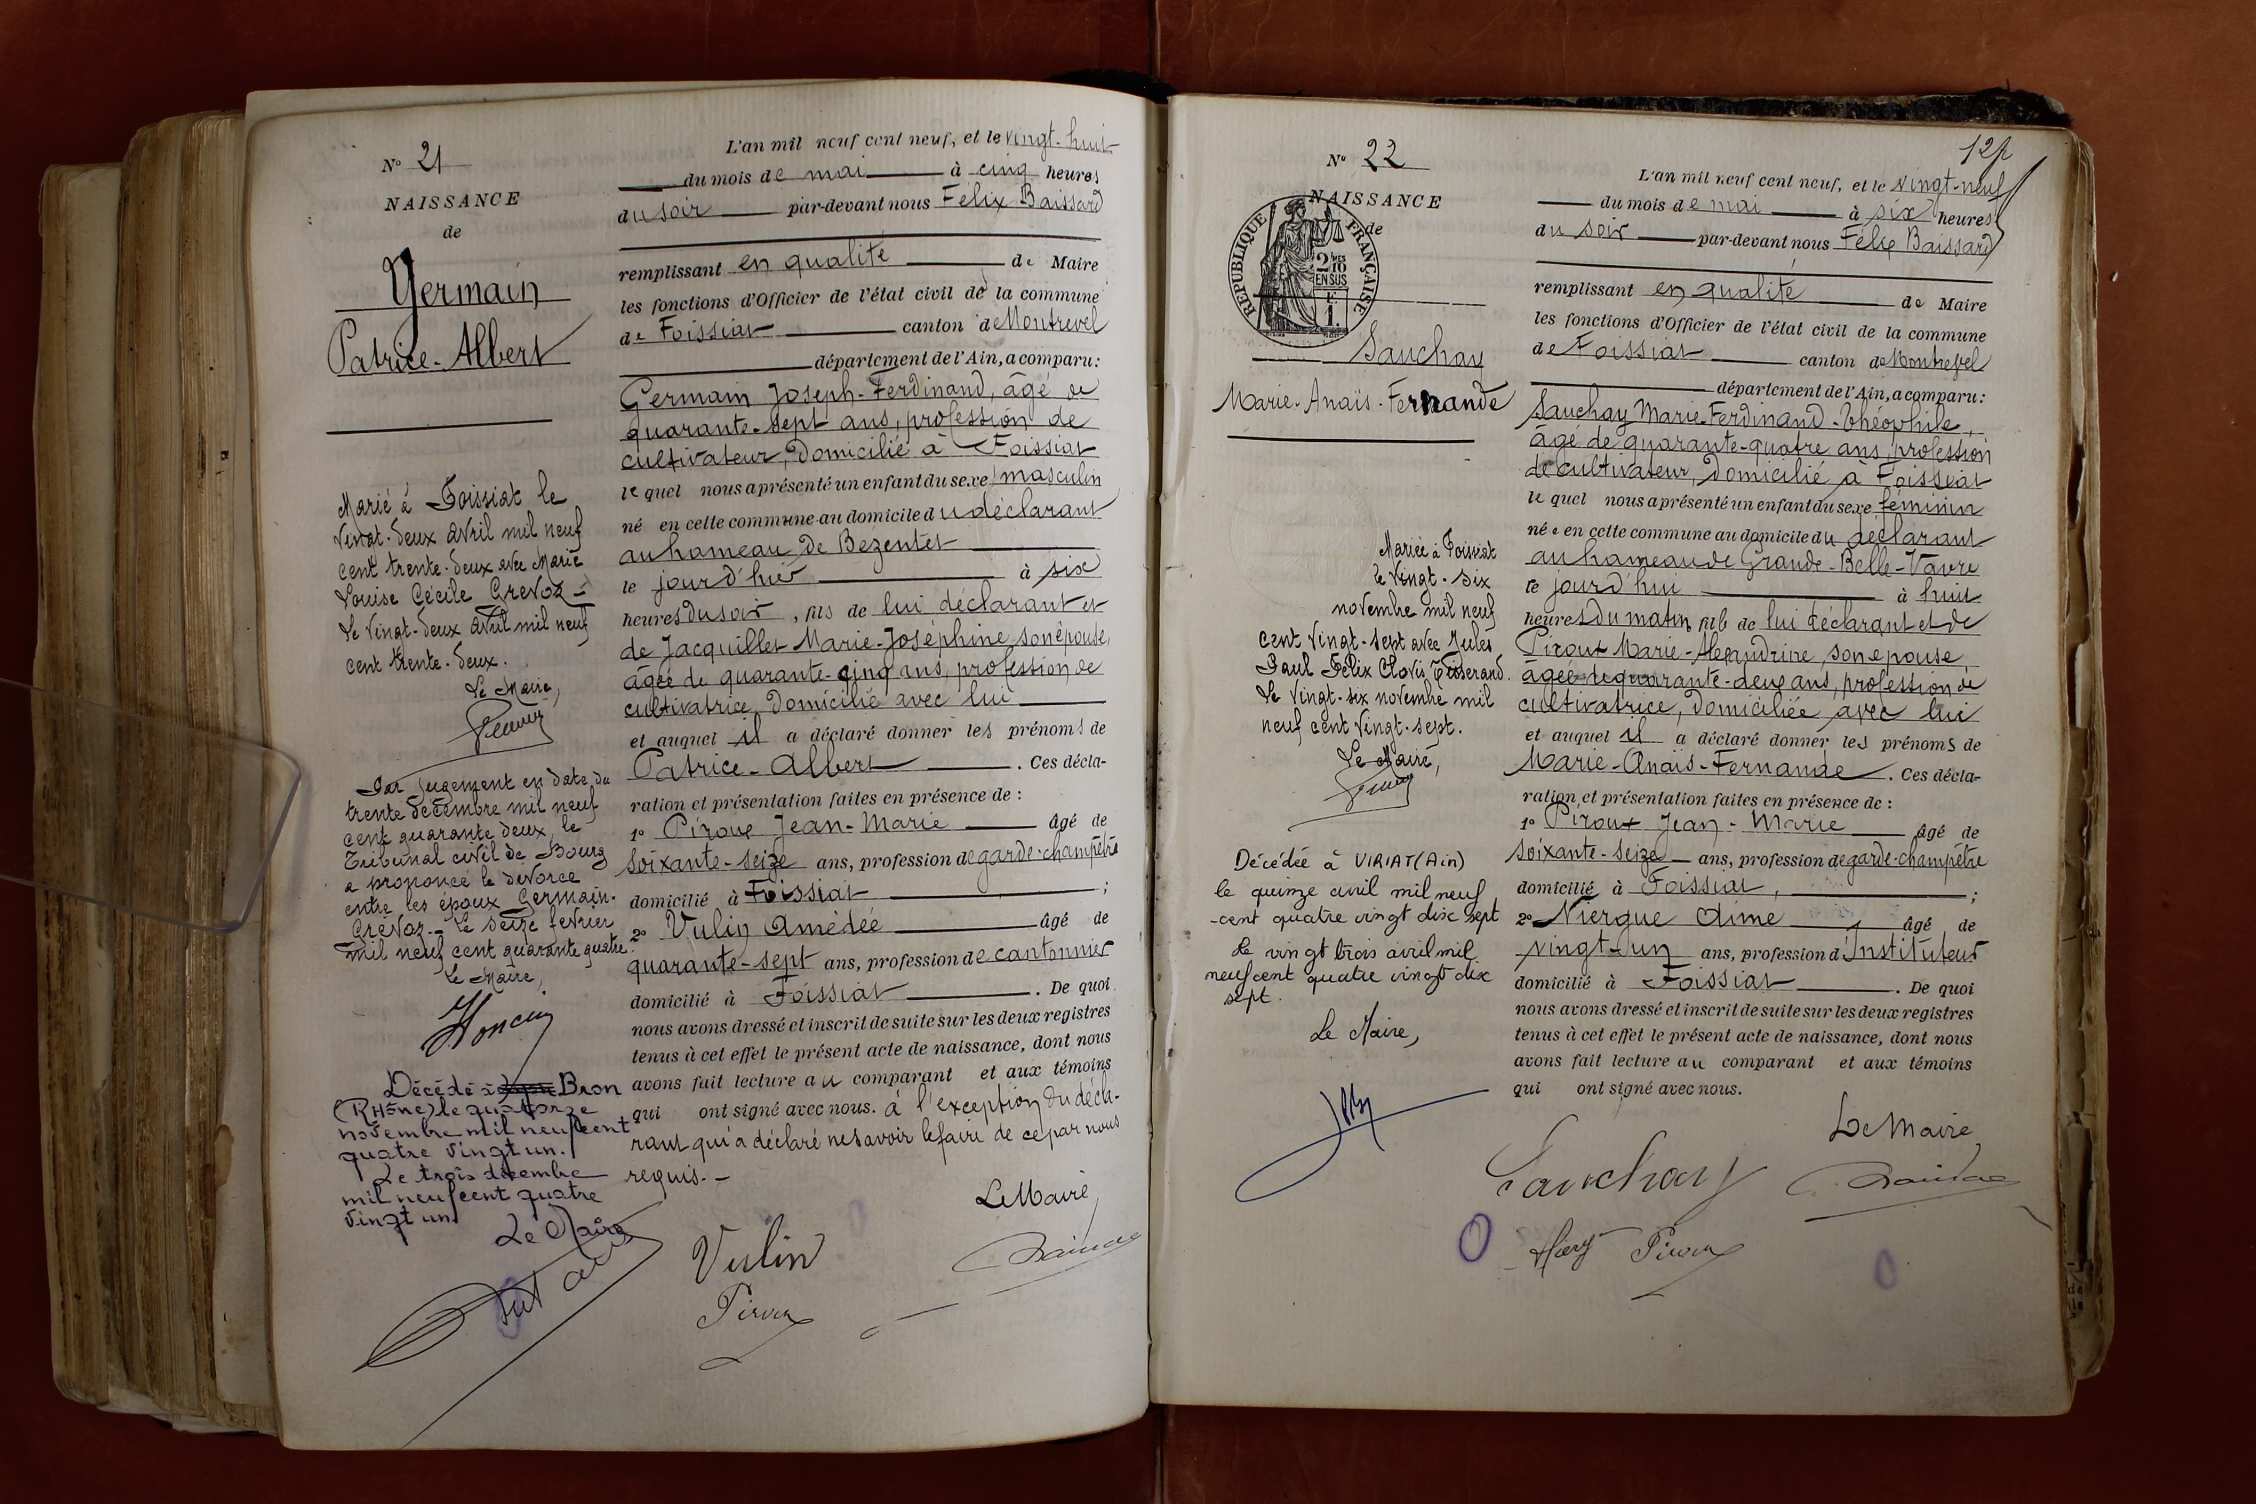 N° 21
NAISSANCE
de
Germain
Patrice-Albert
Marié à Foissiat le
vingt-deux avril mil neuf
cent trente-deux avec Marie
Louise Cécile Crevoz =
Le vingt-deux avril mil neuf
cent trente-deux.
Le Maire,
Par jugement en date du
trente décembre mil neuf
cent quarante deux, le
Tribunal civil de Bourg
a prononcé le divorce
entre les époux Germain-
Crévoz - Le seize fevrier
mil neuf cent quarante quatre.
Le Maire,
Décédé à Bron
(Rhône) le quatorze
novembre mil neuf cent
quatre vingt un.
Le trois décembre
mil neuf cent quatre
vingt un
Le Maire
L'an mil neuf cent neuf, et le vingt-huit
du mois de mai à cinq heures
du soir par-devant nous Félix Baissard
remplissant en qualité de Maire
les fonctions d'Officier de l'état civil de la commune
de Foissiat canton de Montrevel
département de l'Ain, a comparu:
Germain Joseph-Ferdinand, âgé de
quarante-sept ans, profession de
cultivateur, domicilié à Foissiat
lequel nous a présenté un enfant du sexe masculin
né en cette commune au domicile du déclarant
au hameau de Bezentet
le jour d'hier à six
heures du soir, fils de lui déclarant et
de Jacquillet Marie-Joséphine, son épouse,
âgée de quarante-cinq ans, profession de
cultivatrice, domicilié avec lui
et auquel il a déclaré donner les prénoms de
Patrice-Albert . Ces décla-
ration et présentation faites en présence de :
1° Piroux Jean-Marie âgé de
soixante-seize ans, profession de garde-champêtre
domicilié à Foissiat ;
2° Vulin Amédée âgé de
quarante-sept ans, profession de cantonnier
domicilié à Foissiat . De quoi
nous avons dressé et inscrit de suite sur les deux registres
tenus à cet effet le présent acte de naissance, dont nous
avons fait lecture au comparant et aux témoins
qui ont signé avec nous. à l'exception du décla-
rant qui a déclaré ne savoir le faire de ce par nous
requis.-
Le Maire,
Vulin
Piroux
12
N° 22
NAISSANCE
de
REPUBLIQUE FRANÇAISE
2/10 MES
EN SUS
F.
1.
Sauchay
Marie-Anaïs-Fernande
Mariée à Foissiat
le vingt-six
novembre mil neuf
cent vingt-sept avec Jules
Paul Félix Clovis Tisserand.
Le vingt-six novembre mil
neuf cent vingt-sept.
Le Maire,
Décédée à VIRIAT (Ain)
le quinze avril mil neuf
-cent quatre vingt dix sept
Le vingt trois avril mil
neuf cent quatre vingt dix
sept.
Le Maire,
L'an mil neuf cent neuf, et le vingt-neuf
du mois de mai à six heures
du soir par-devant nous Félix Baissard
remplissant en qualité de Maire
les fonctions d'Officier de l'état civil de la commune
de Foissiat canton de Montrevel
département de l'Ain, a comparu:
Sauchay Marie-Ferdinand-Théophile,
âgé de quarante-quatre ans, profession
de cultivateur, domicilié à Foissiat
lequel nous a présenté un enfant du sexe féminin
née en cette commune au domicile du déclarant
au hameau de Grande-Belle-Vavre
le jour d'hui à huit
heures du matin, fille de lui déclarant et de
Piroux Marie-Alexandrine, son épouse,
âgée de quarante-deux ans, profession de
cultivatrice, domiciliée avec lui
et auquel il a déclaré donner les prénoms de
Marie-Anaïs-Fernande . Ces décla-
ration et présentation faites en présence de :
1° Piroux Jean-Marie âgé de
soixante-seize ans, profession de garde-champêtre
domicilié à Foissiat, ;
2° Aimé âgé de
vingt-un ans, profession d'Instituteur
domicilié à Foissiat . De quoi
nous avons dressé et inscrit de suite sur les deux registres
tenus à cet effet le présent acte de naissance, dont nous
avons fait lecture au comparant et aux témoins
qui ont signé avec nous.
Le Maire
Sauchay
Piroux